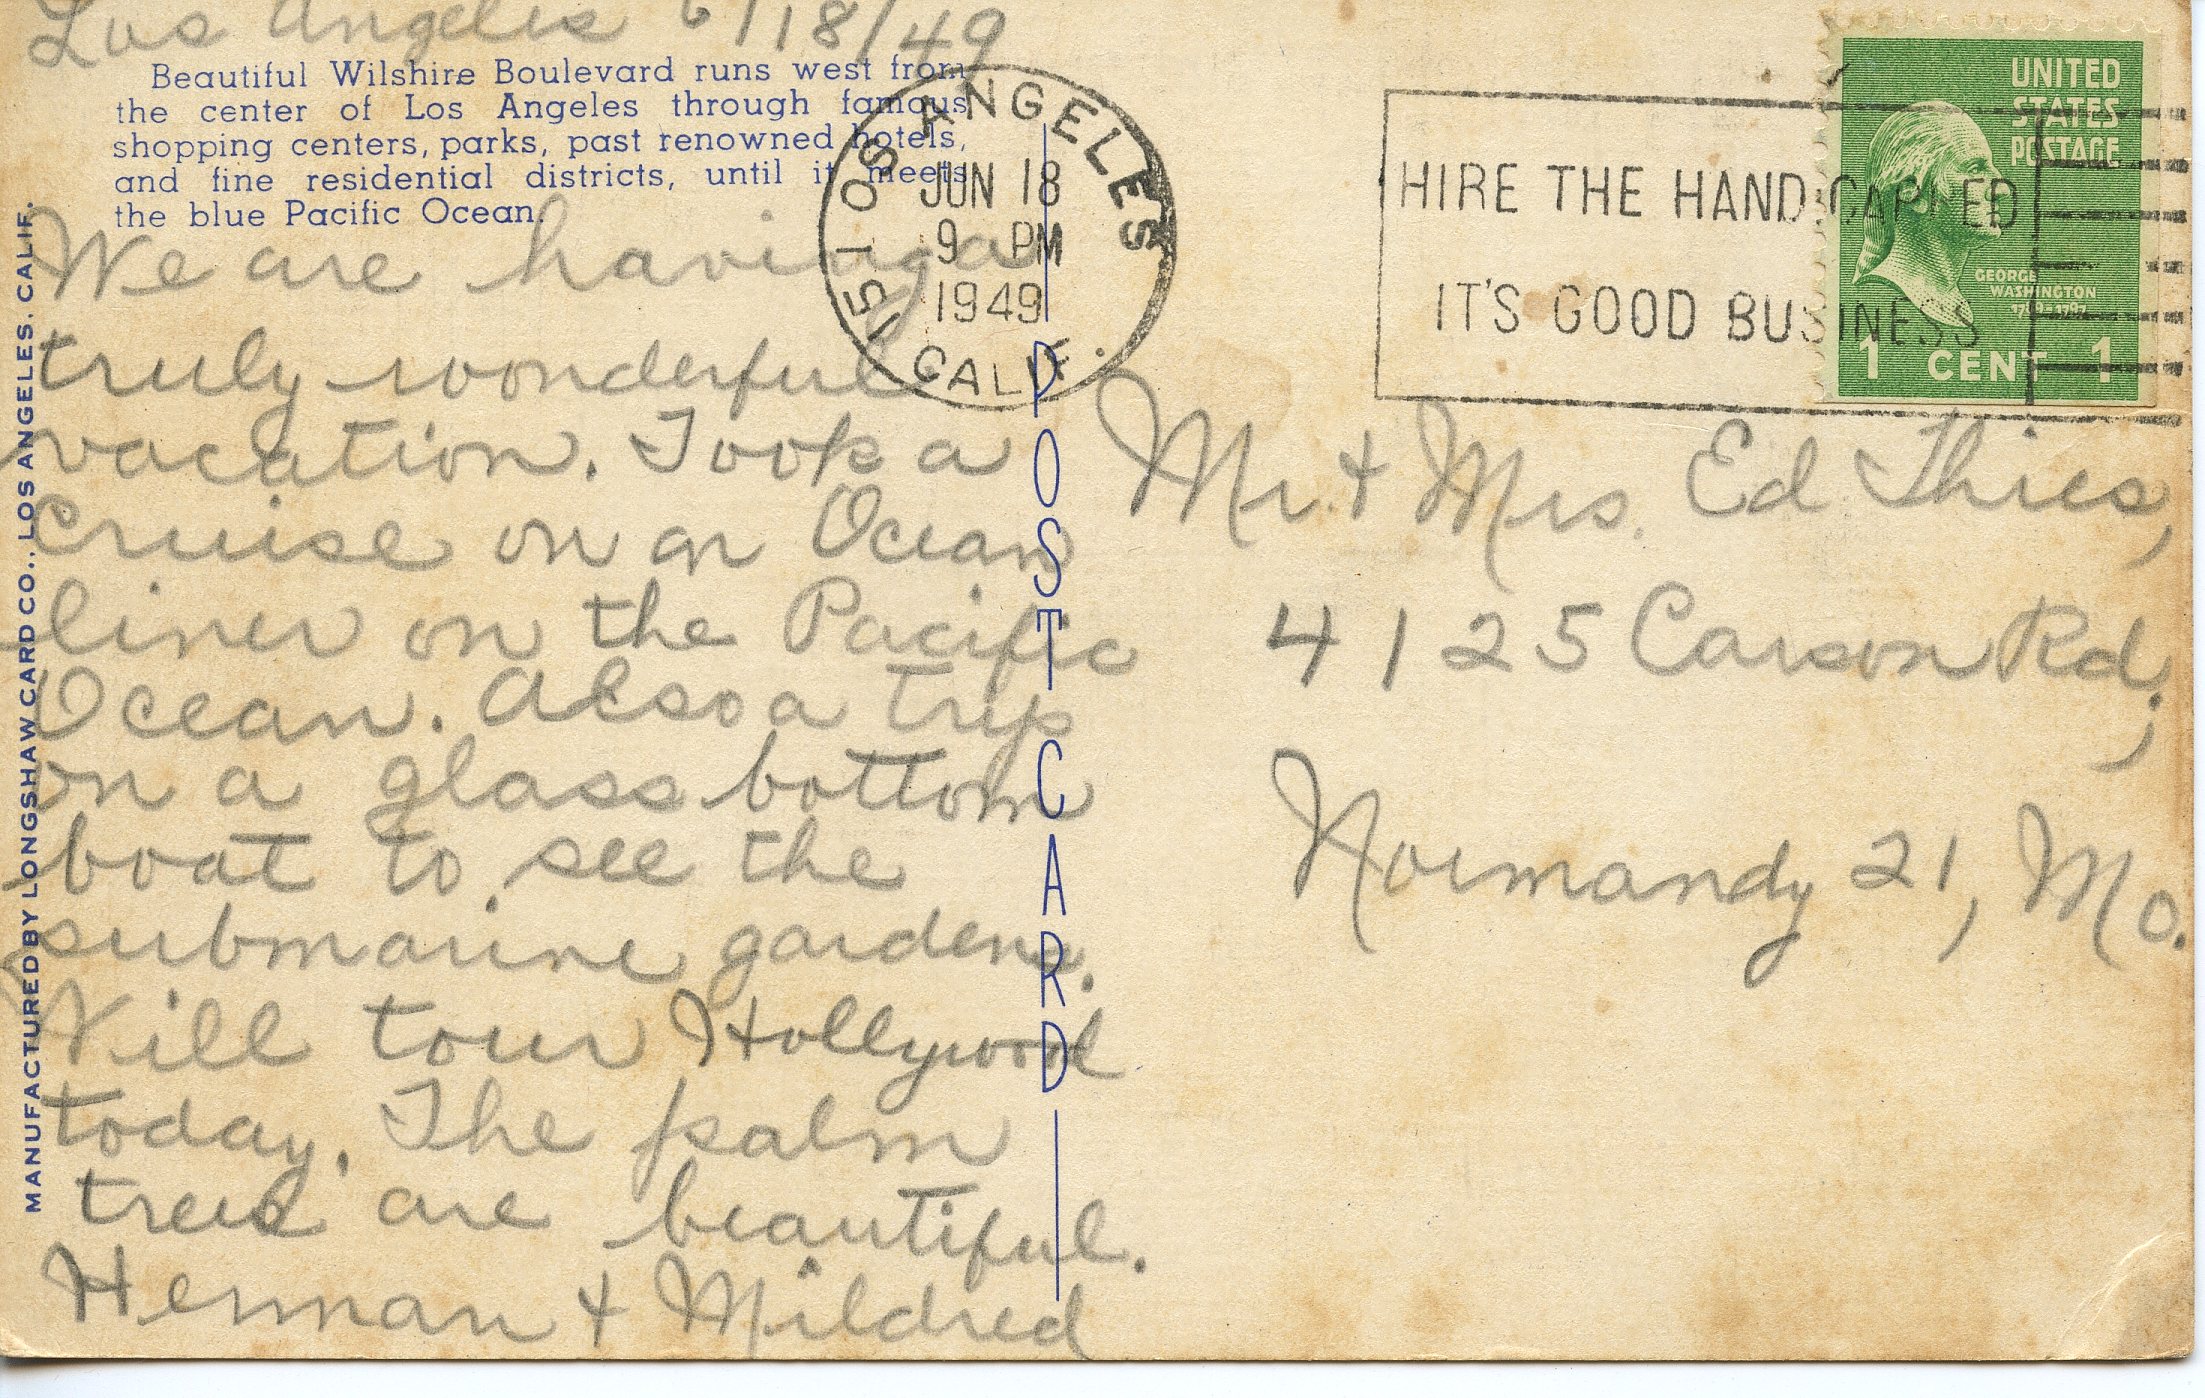 Los Angeles 6/18/49
Beautiful Wilshire Boulevard runs west from
the center of Los Angeles through famous
shopping centers, parks, past renowned hotels,
and fine residential districts, until it meets
the blue Pacific Ocean.
We are having a
truly wonderful
vacation. Took a
Cruise on an Ocean
liner on the Pacific
Ocean. Also a trip
on a glass bottom
boat to see the
submarine gardens.
Will tour Hollywood
today. The palm
trees are beautiful.
Herman & Mildred
MANUFACTURED BY LONGSHAW CARD CO., LOS ANGELES, CALIF.
POST CARD
LOS ANGELES 15
CALIF.
JUN 18
9 PM
1949
HIRE THE HANDICAPPED
IT'S GOOD BUSINESS
UNITED
STATES
POSTAGE
GEORGE
WASHINGTON
1789-1797
1 CENT 1
Mr. & Mrs. Ed Thies,
4125 Carson Rd.,
Normandy 21, Mo.